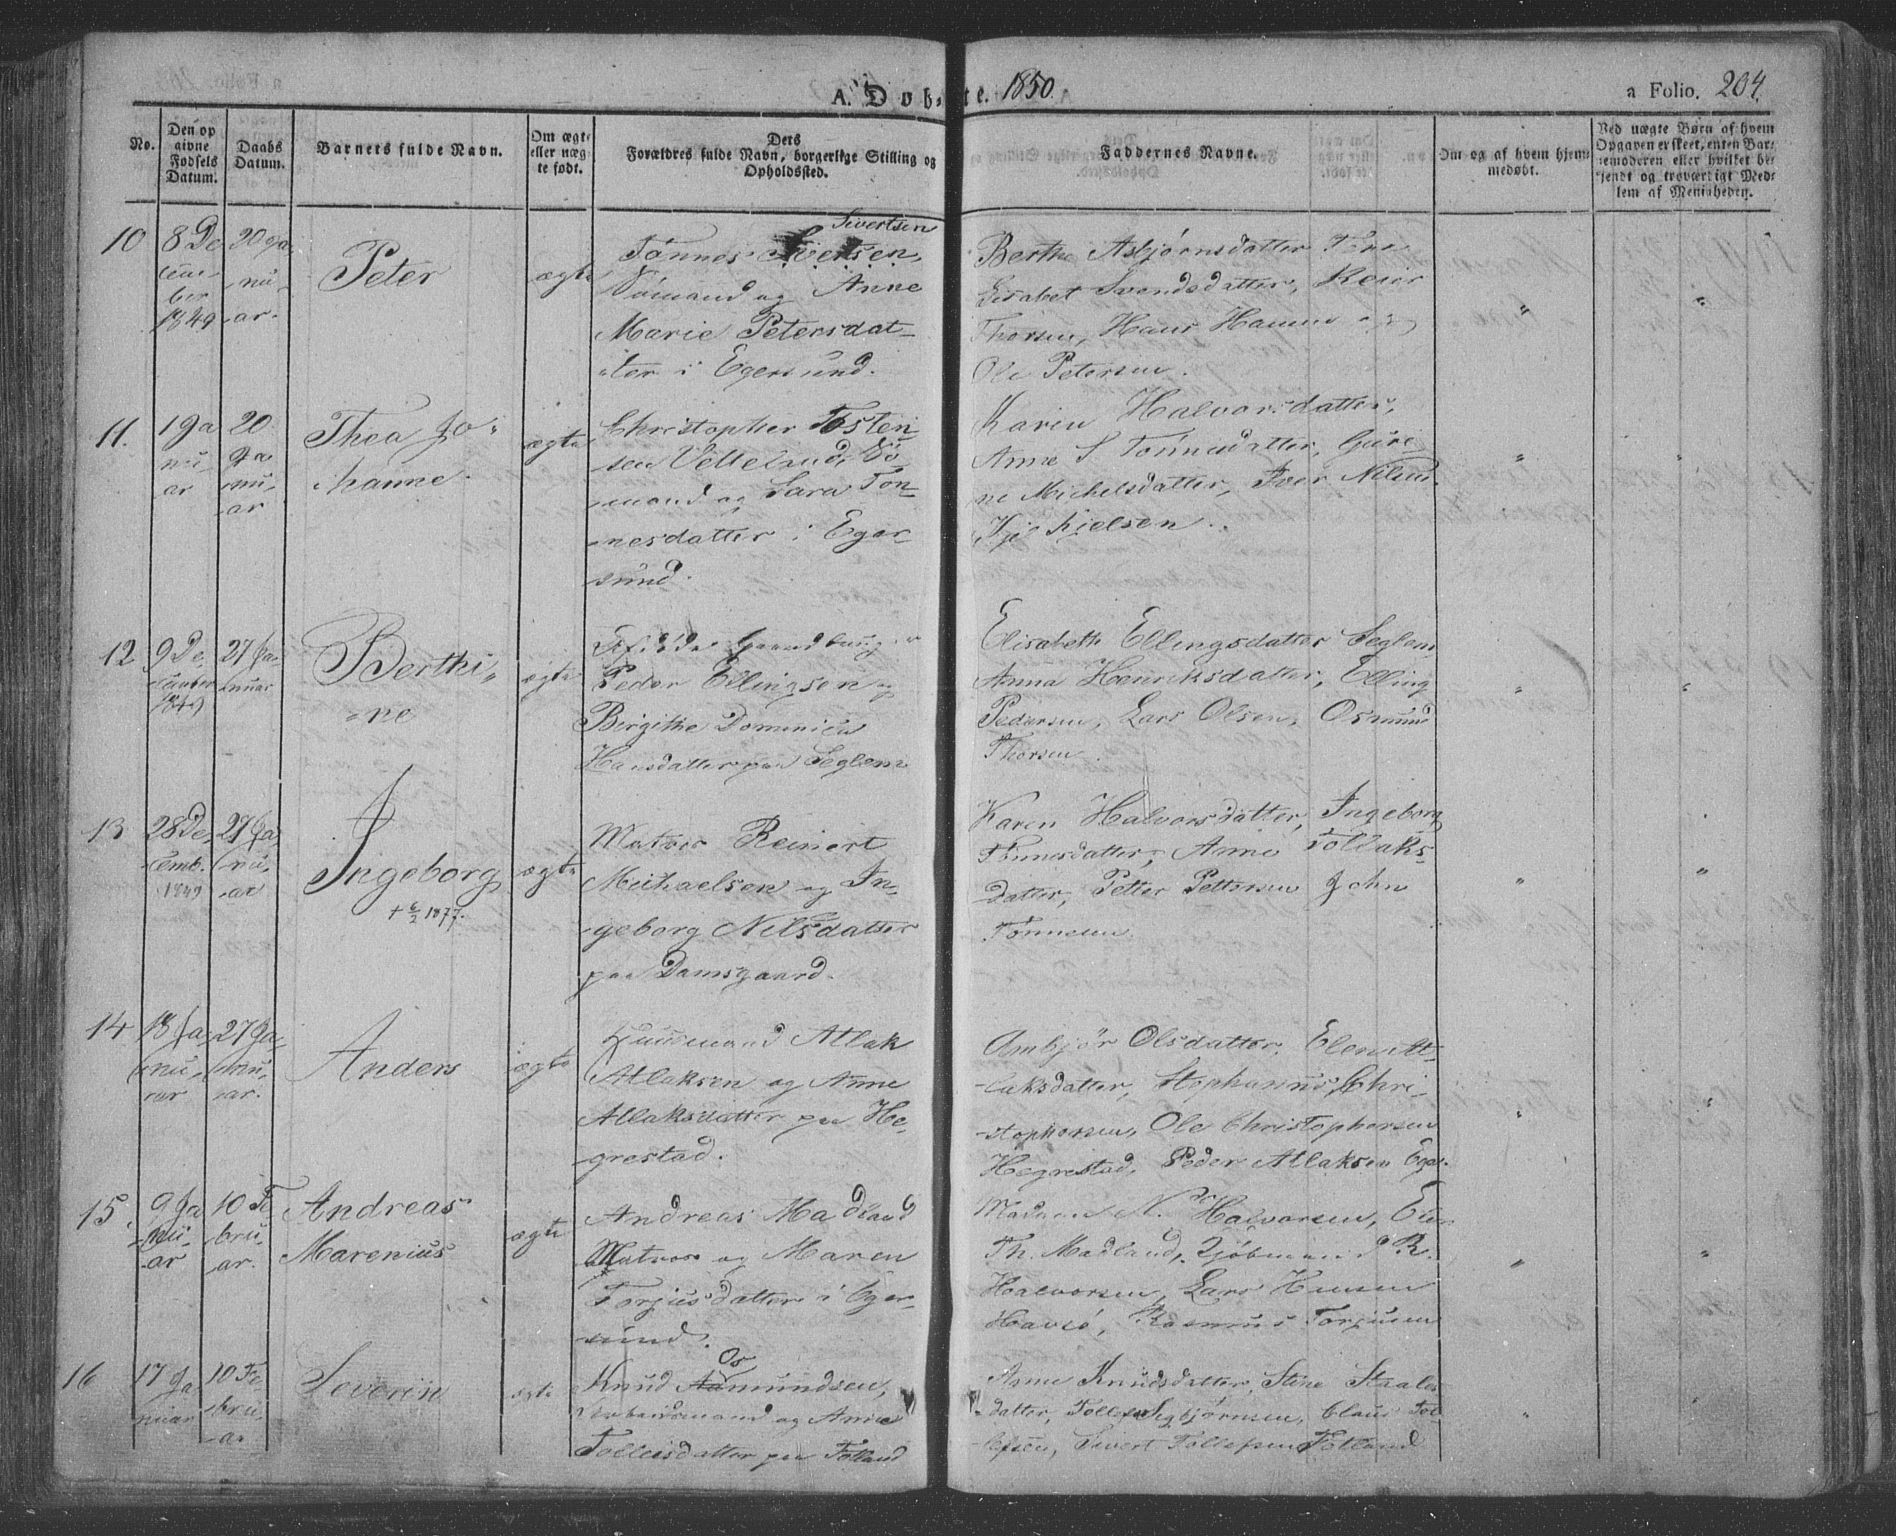 A. Døbte. 1850.
a Folio. 204.
No.
Den op
givne
Fødsels
Datum.
Daabs
Datum.
Barnets fulde Navn.
Om ægte
eller uæg
te født.
Ders
Forældres fulde Navn, borgerlige Stilling og
Opholdssted.
Faddernes Navne.
Om og af hvem hjem-
medøbt.
Ved uægte Børn af hvem
Opgaven er skeet, enten Bar
nemoderen eller hvilket be
kjendt og troværdigt Med
lem af Menigheden.
10
8 De
cem
ber
1849
20 Ja
nu
ar.
Peter
ægte
Sivertsen
Tønnes Sivertsen,
Sømand og Anne
Marie Petersdat-
ter i Egersund.
Berthe Asbjørnsdatter
Lisabet Svendsdatter, Reier
Thorsen, Hans
Ole Petersen.
11.
1 Ja
nu
ar
20
Ja
nu,
ar
Thea Jo-
hanne.
ægte
Christopher Tosten
sen Vettelund, Sø
mand og Sara Ton-
nesdatter i Eger
sund.
Karen Halvorsdatter,
Anne S Tønnesdatter, Guri
ne Michelsdatter, Iver
Kjelsen.
12
9 De
cember
1849
27 Ja-
nuar
Berthi-
ne
ægte
Peder Ellingsen og
Birgithe
Hansdatter paa Seglem
Elisabeth Ellingsdatter Seglem
Anna Henriksdatter, Elling
Pedersen, Lars Olsen, Osmund
Thorsen
13
28 De
cemb.
1849
27 Ja
nu,
ar
Ingeborg
+ 6/2 1877.
ægte
Matros Reinert
Michaelsen og In-
geborg Nilsdatter
paa Damsgaard.
Karen Halvorsdatter, Ingeborg
Tønnesdatter, Anne Tollaks-
datter, Petter Pettersen John
Tønnesen.
14
18 Ja-
nu,
ar
27 Ja-
nu,
ar.
Anders
ægte
Huusmand Atlak
Atlaksen og Anne
Atlaksdatter paa He-
grestad.
Ambjør Olsdatter, Elen At-
laksdatter, Stephanus Chri-
stophersen, Ole Christophersen
Hegrestad, Peder Atlaksen
15.
9 Ja
nu
ar
10 Fe
bru-
ar.
Andreas
Marenius
ægte
Andreas Madland
Matros og Maren
Torjusdatter i Eger-
sund.
Madam N. Halvorsen, Elen
Th. Madland, Kjøbmand R.
Halvorsen, Lars Hansen
Havsø, Rasmus Torjusen
16
17
Ja
nuar
10 Fe-
bru,
ar
Severin
ægte
Os
Knud Aamundsen,
Arbeidsmand og Anne
Tolleisdatter paa Fotland
Anne Knudsdatter, Stine Staale
datter, Tollef Sigbjørnsen, Claus Tol
lefsen, Sivert Tollefsen Fotland